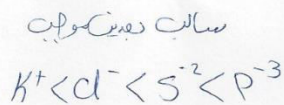 سالب وبعدين موجب
K⁺ < Cl⁻ < S⁻² < P⁻³